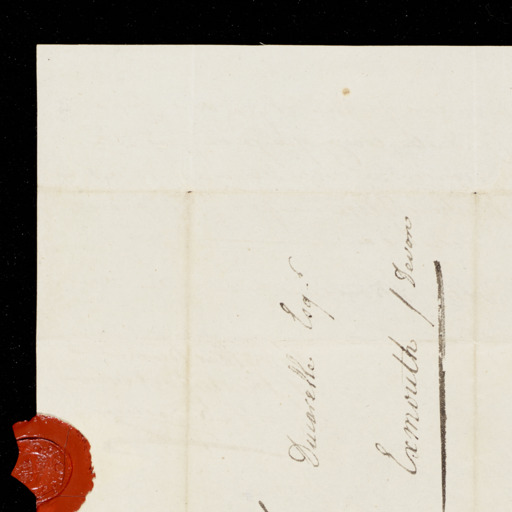 Ducarelle Esqr
Exmouth / Devon